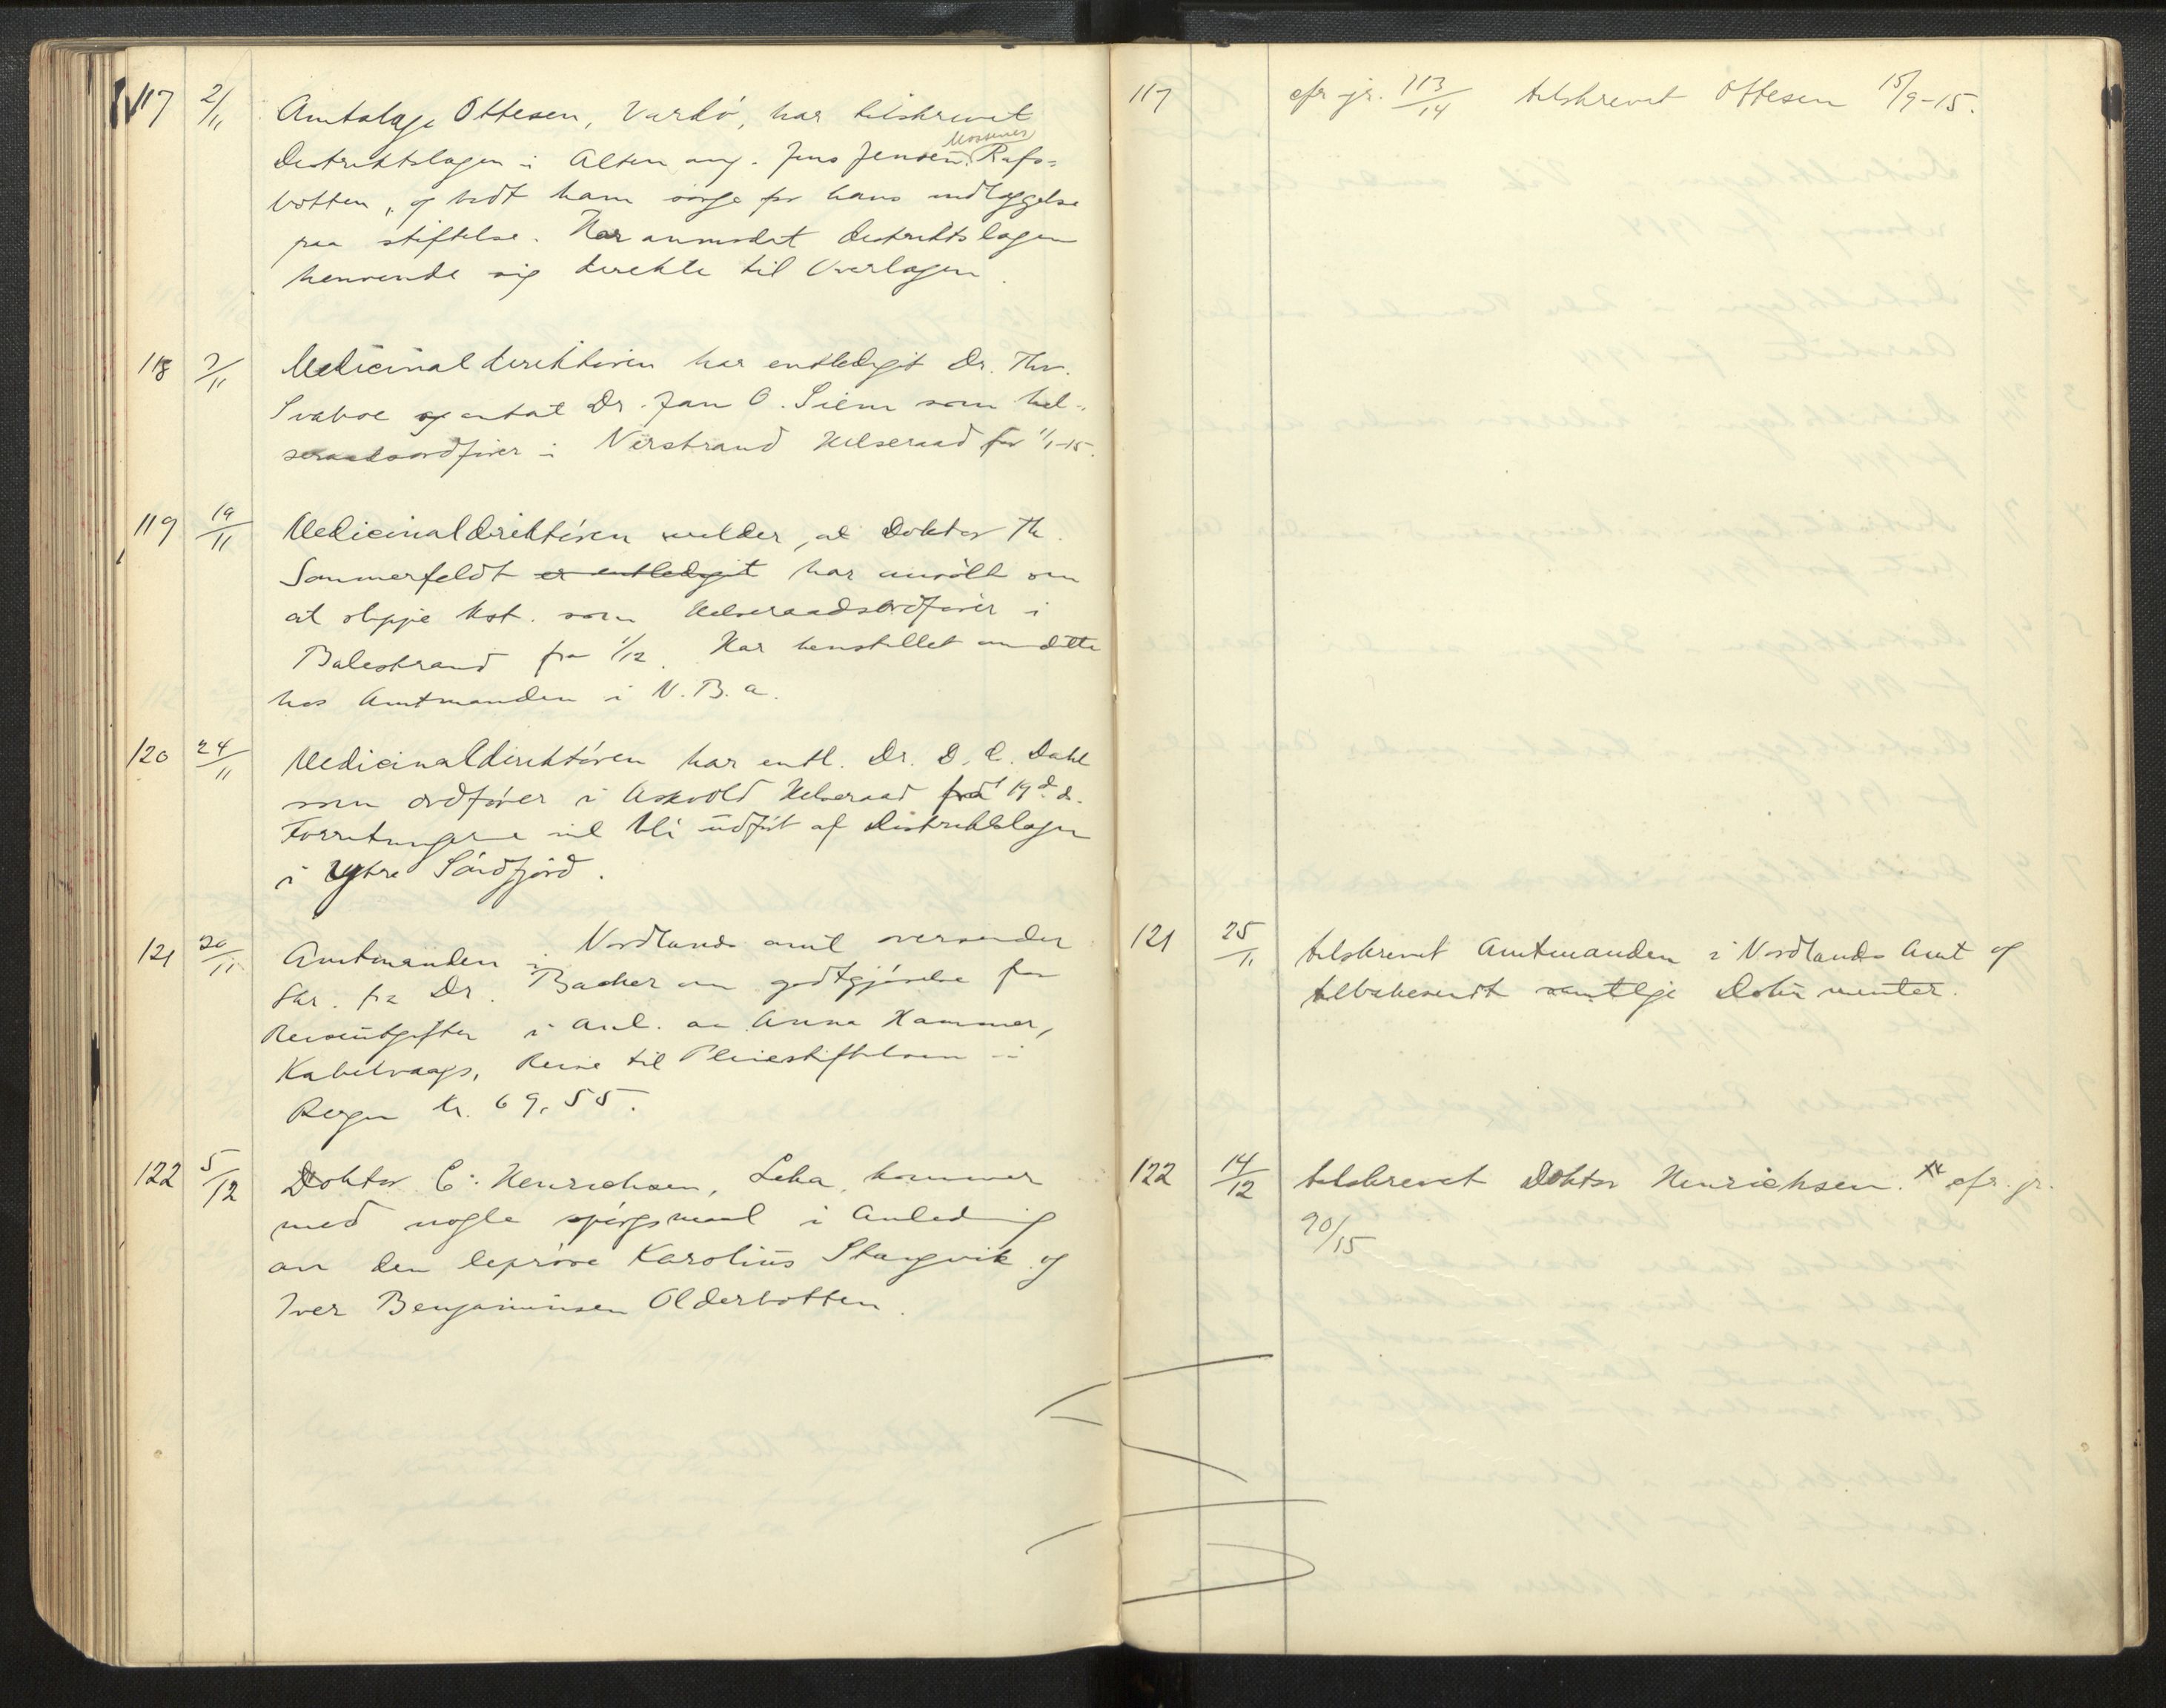 117 2/11 Amtslæge Ottesen, Vardö, har tilskrevet
Distriktslægen i Alten ang. Jens Jensen Rafs=
botten, og bedt ham sörge for hans indlæggelse
paa stiftelse. Har anmodet Distriktslægen
henvende sig direkte til Overlægen.
118 7/11 Medicinaldirektören har entlediget Dr. Thv.
Svaboe og antat Dr. Jan O. Siem som hel-
seraadsordförer i Nerstrand Helseraad fra 1/1-15.
119 19/11 Medicinaldirektören melder, at Doktor Th.
Sommerfeldt er entlediget har ansökt om
at slippe Kst. som Helseraadsordförer i
Balestrand fra 1/12. Har henstillet om dette
hos Amtmanden i N. B. a.
120 24/11 Medicinaldirektören har entl. Dr. D. C. Dahl
som ordförer i Askvold Helseraad fra 19 d. d.
Forretningerne vil bli udfört af Distriktslægen
i Ytre Söndfjord.
121 20/11 Amtmanden i Nordlands amt oversender
Skr. fra Dr. Backer om godtgjörelse for
Reiseutgifter i anl. av Anna Hammer,
Kabelvaags, Reise til Pleiestiftelsen i
Bergen kr. 69,55.
122 5/12 Doktor C. Henrichsen, Leka, kommer
med nogle spörgsmaal i Anledning
av den lepröse Karolius Stangvik og
Iver Benjaminsen Olderbotten.
117 cfr. jr. 113/14 tilskrevet Ottesen 15/9-15.
121 25/11 tilskrevet Amtmanden i Nordlands Amt og
tilbakesendt samtlige Dokumenter.
122 14/12 tilskrevet Doktor Henrichsen. cfr. jr.
90/15